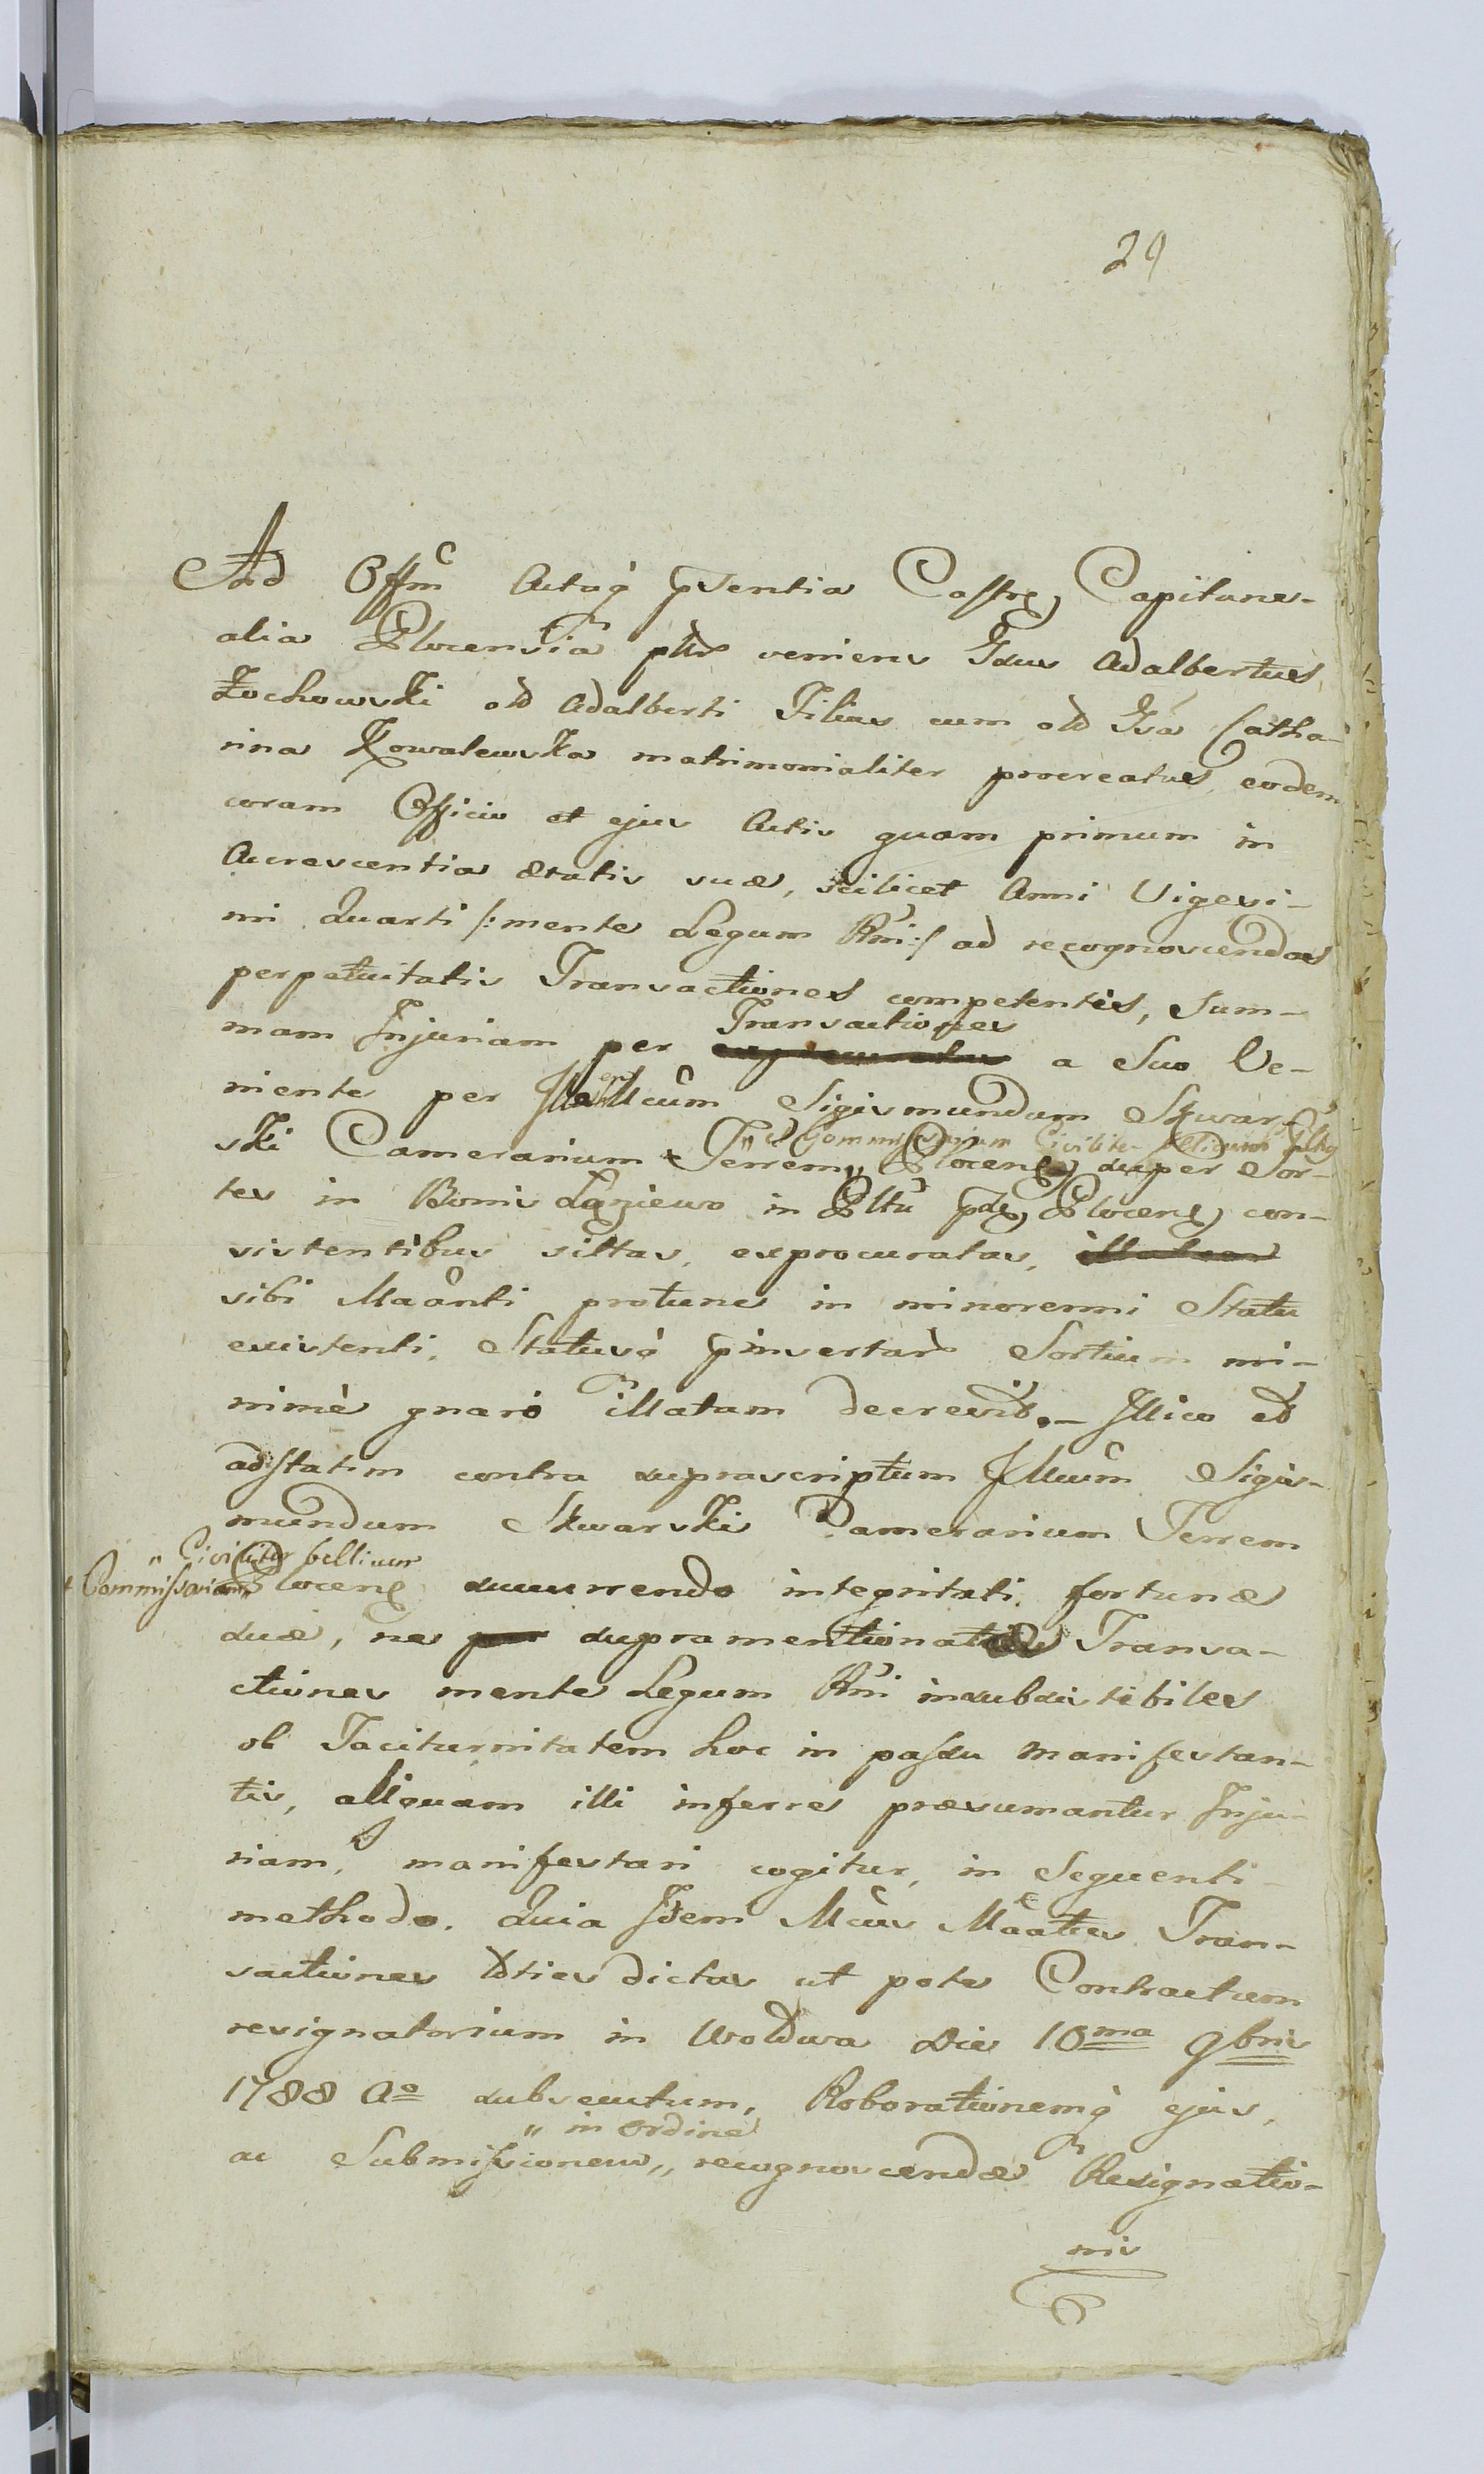 29
Ad Offm Actaq pntia Castr Capitane-
alia Plocensia pltr veniens Gsus Adalbertus
Żochowski olỏ Adalberti Filius cum olỏ Gsa Catha-
rina Kowalewska matrimonialiter procreatus, eodem
coram Officio et ejus Actis quam primum in
Accrescentia ætatis suæ, scilicet Anni Vigesi-
mi Quarti /: mente Legum Rni :/ ad recognoscendas
perpetuitatis Transactiones competentis, Sum-
mam Injuriam per Transactiones a Suo Ve-
niente per Mcum Sigismundum Skwar-
ski Camerarium Terrem „ & Commissarium Civiliter „ Plocens super Sor-
tes in Bonis Łąziewo in Pltu Plocens con-
sistentibus sittas, exprocuratas,
sibi Maânti protunc in minorenni Statu
existenti, Statusq Sortium mi-
nimè gnaro illatam decrevit. - Illico et
adstatim contra suprascriptum Mcum Sigis-
mundum Skwarski Camerarium Terrem
„ Civiliter bellicum
Commissarium „ Plocens succurrendo integritati fortunæ
suæ, ne supramentionatæ Transa-
ctiones mente Legum Rni insubsistibiles
ob Taciturnitatem hoc in passu manifestan-
tis, aliquam illi inferre præsumantur Inju-
riam, manifestari cogitur, in Sequenti
methodo. Quia Idem Mcus Maâtus Tran-
sactiones toties dictas ut pote Contractum
resignatorium in Woldwa Die 10ma 9bris
1788 Ao subsecutum, Roborationemq ejus,
ac Submissionem „ in ordine „ recognoscendæ Resignatio-
nis